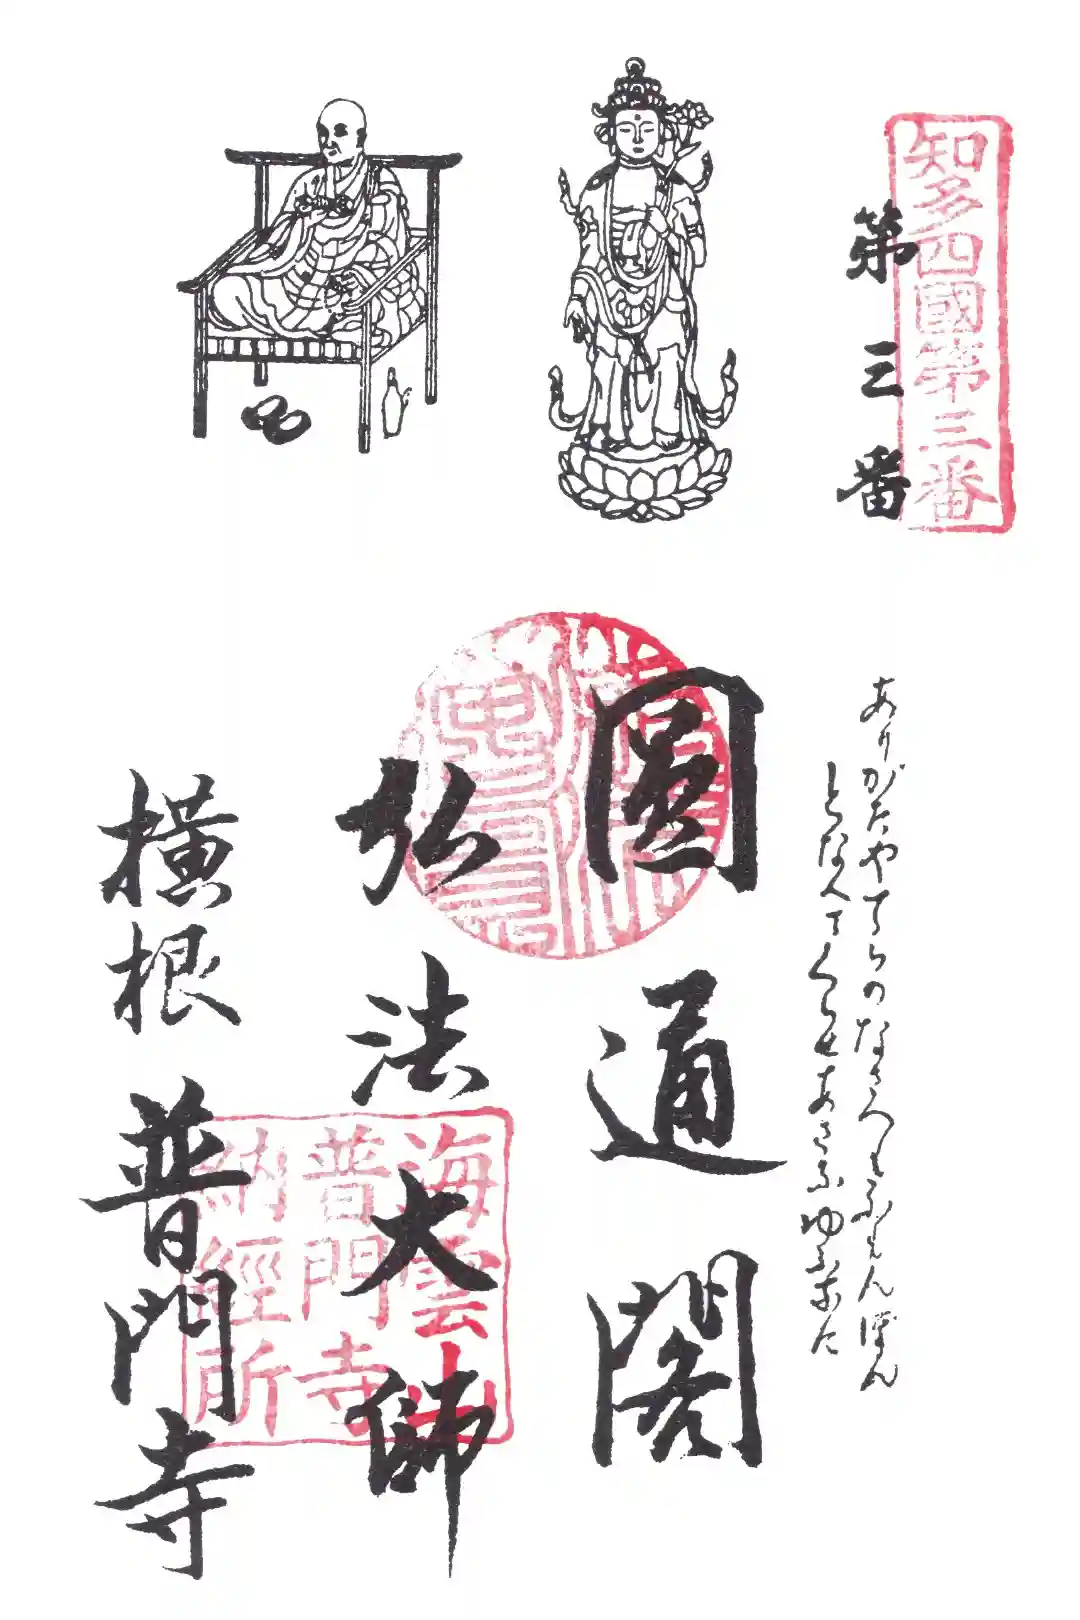 知多四國第三番
第三番
ありがたやてらのなさへもふもんぼん
となへてくらせあさなゆふなに
圓通閣
弘法大師
横根 普門寺
海雲山
普門寺
納經所